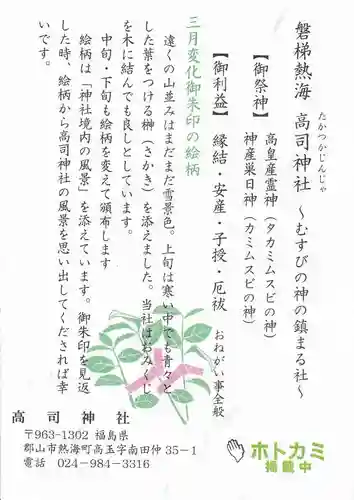 磐梯熱海 高司神社 ～むすびの神の鎮まる社～
たかつかじんじゃ
【御祭神】
高皇産霊神（タカミムスビの神）
神産巣日神（カミムスビの神）
【御利益】 縁結・安産・子授・厄祓 おねがい事全般
三月変化御朱印の絵柄
遠くの山並みはまだまだ雪景色。上旬は寒い中でも青々と
した葉をつける榊（さかき）を添えました。当社はおみくじ
を木に結んでも良しとしています。
中旬・下旬も絵柄を変えて頒布します
絵柄は「神社境内の風景」を添えています。御朱印を見返
した時、絵柄から高司神社の風景を思い出してくだされば幸
いです。
高司神社
〒963-1302 福島県
郡山市熱海町高玉字南田仲 35－1
電話 024－984－3316
ホトカミ
掲載中